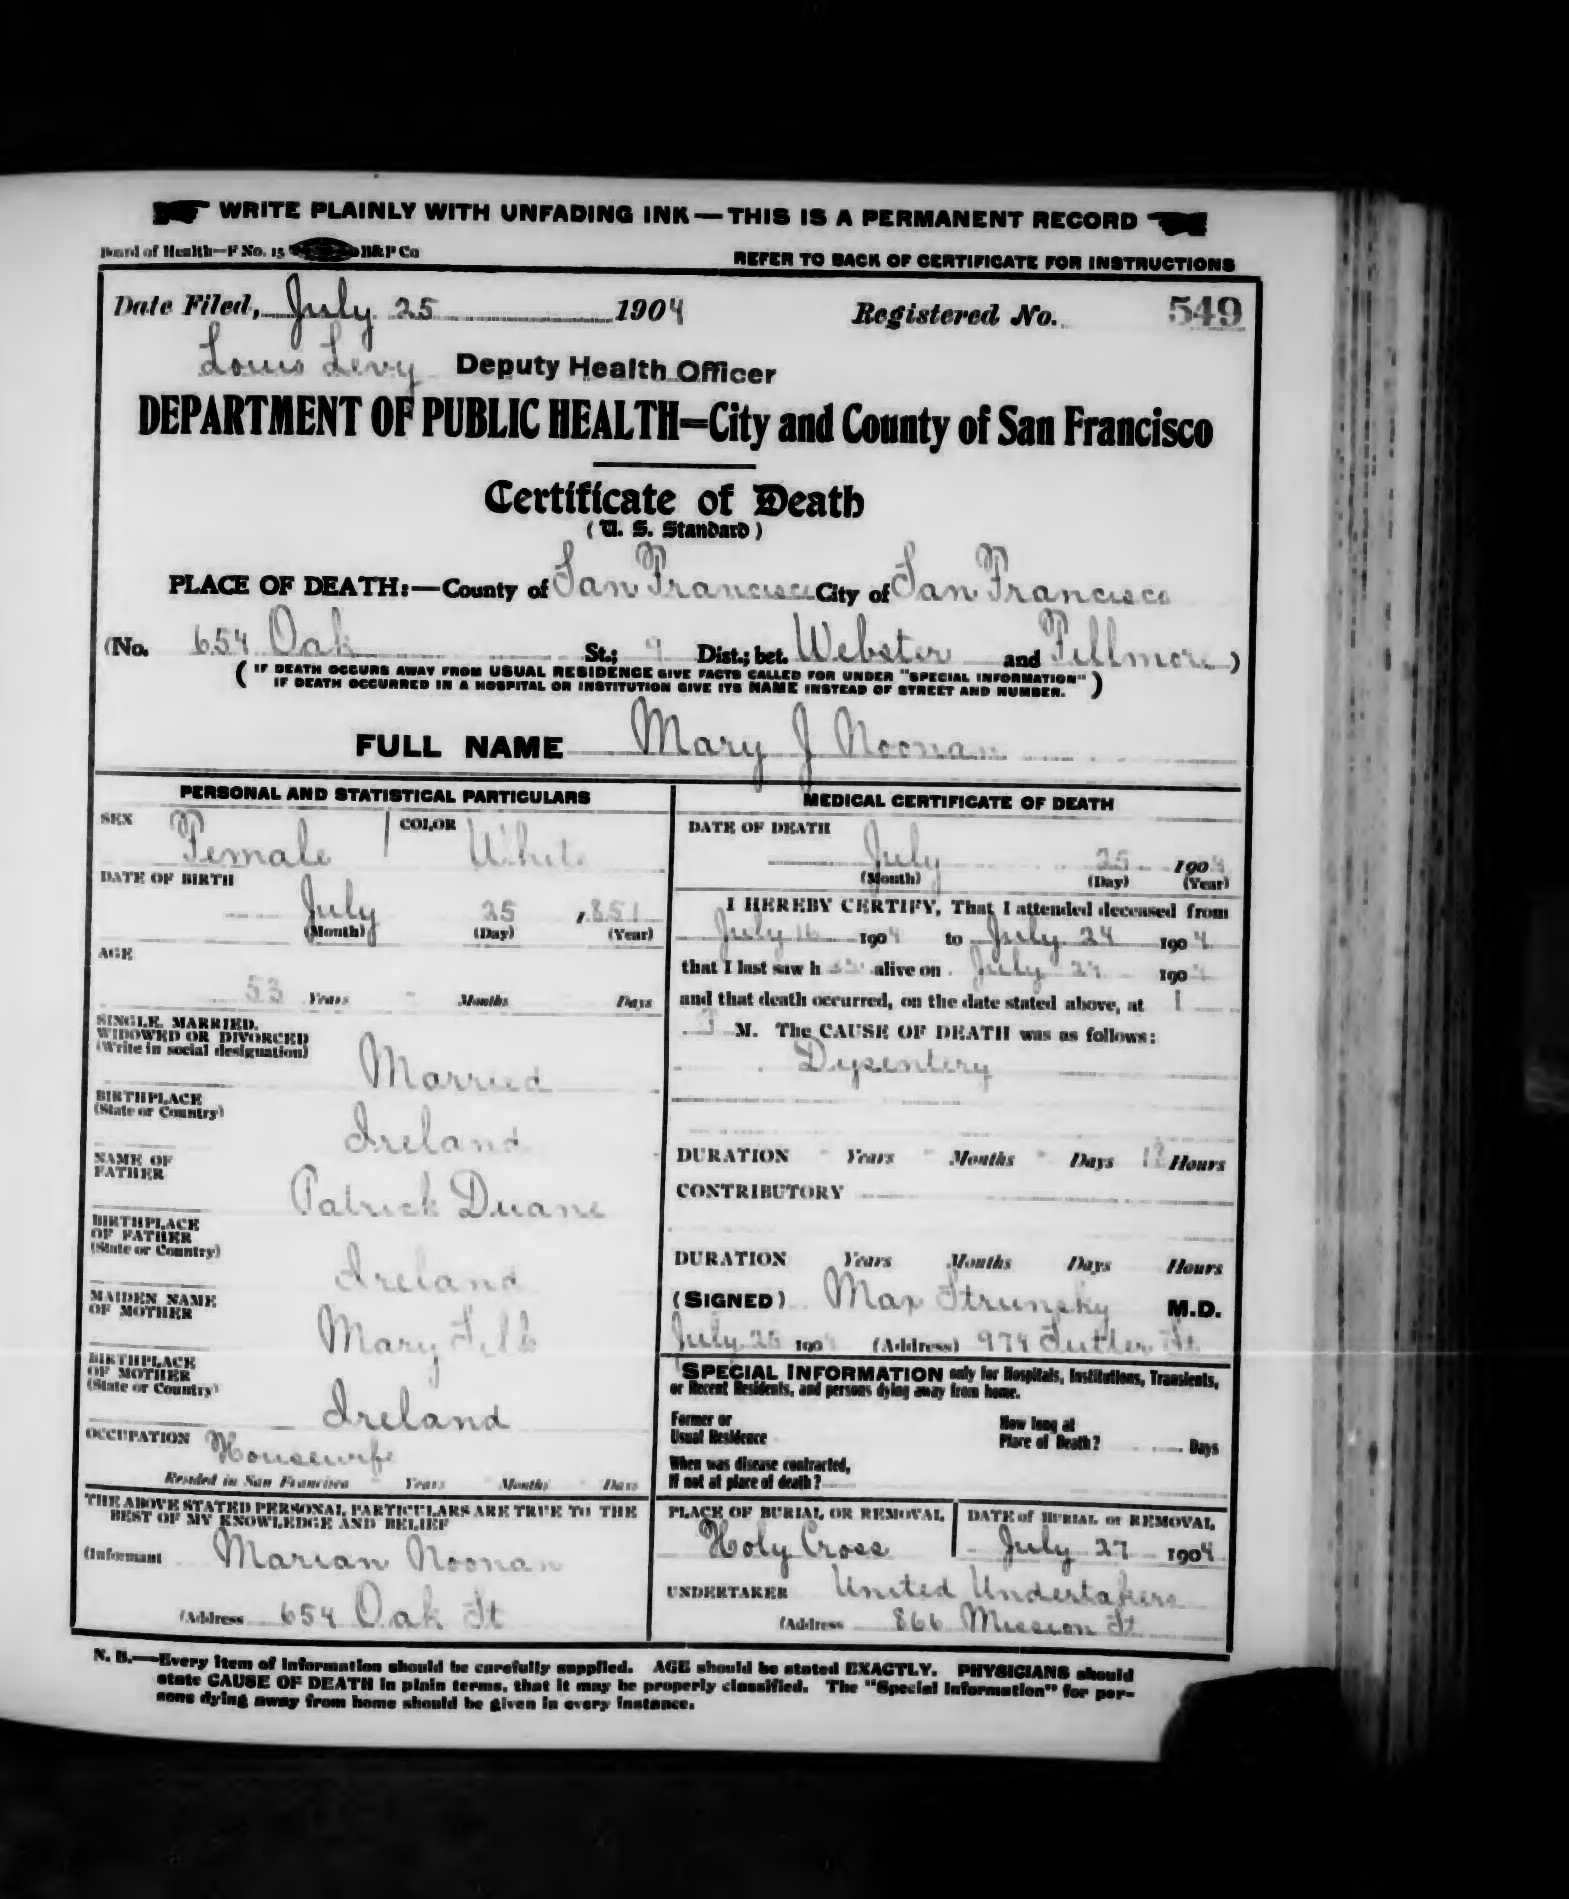 WRITE PLAINLY WITH UNFADING INK — THIS IS A PERMANENT RECORD
Board of Health—F No. 15 H&P Co
REFER TO BACK OF CERTIFICATE FOR INSTRUCTIONS
Date Filed, July 25 1904 Registered No. 549
Louis Levy Deputy Health Officer
DEPARTMENT OF PUBLIC HEALTH=City and County of San Francisco
Certificate of Death
(U. S. Standard)
PLACE OF DEATH:—County of San Francisco City of San Francisco
(No. 654 Oak St.; 9 Dist.; bet. Webster and Fillmore)
(IF DEATH OCCURS AWAY FROM USUAL RESIDENCE GIVE FACTS CALLED FOR UNDER "SPECIAL INFORMATION"
IF DEATH OCCURRED IN A HOSPITAL OR INSTITUTION GIVE ITS NAME INSTEAD OF STREET AND NUMBER.)
FULL NAME Mary J Noonan
PERSONAL AND STATISTICAL PARTICULARS
SEX Female COLOR White
DATE OF BIRTH
July 25 , 1851
(Month) (Day) (Year)
AGE
53 Years - Months Days
SINGLE, MARRIED,
WIDOWED OR DIVORCED
(Write in social designation)
Married
BIRTHPLACE
(State or Country)
Ireland
NAME OF
FATHER
Patrick Duane
BIRTHPLACE
OF FATHER
(State or Country)
Ireland
MAIDEN NAME
OF MOTHER
Mary
BIRTHPLACE
OF MOTHER
(State or Country)
Ireland
OCCUPATION Housewife
Resided in San Francisco Years Months Days
THE ABOVE STATED PERSONAL PARTICULARS ARE TRUE TO THE
BEST OF MY KNOWLEDGE AND BELIEF
(Informant Marian Noonan
(Address 654 Oak St
MEDICAL CERTIFICATE OF DEATH
DATE OF DEATH
July 25 1904
(Month) (Day) (Year)
I HEREBY CERTIFY, That I attended deceased from
July 16 1904 to July 24 1904
that I last saw h er alive on July 24 1904
and that death occurred, on the date stated above, at 1
M. The CAUSE OF DEATH was as follows:
Dysentery
DURATION - Years - Months - Days 12 Hours
CONTRIBUTORY
DURATION Years Months Days Hours
(SIGNED) Max Strunsky M.D.
July 25 1904 (Address) 974 Sutter St
SPECIAL INFORMATION only for Hospitals, Institutions, Transients,
or Recent Residents, and persons dying away from home.
Former or
Usual Residence
How long at
Place of Death? Days
When was disease contracted,
If not at place of death?
PLACE OF BURIAL OR REMOVAL
Holy Cross
DATE of BURIAL or REMOVAL
July 27 1904
UNDERTAKER United Undertakers
(Address 866 Mission St
N. B.—Every item of information should be carefully supplied. AGE should be stated EXACTLY. PHYSICIANS should
state CAUSE OF DEATH in plain terms, that it may be properly classified. The "Special Information" for per-
sons dying away from home should be given in every instance.